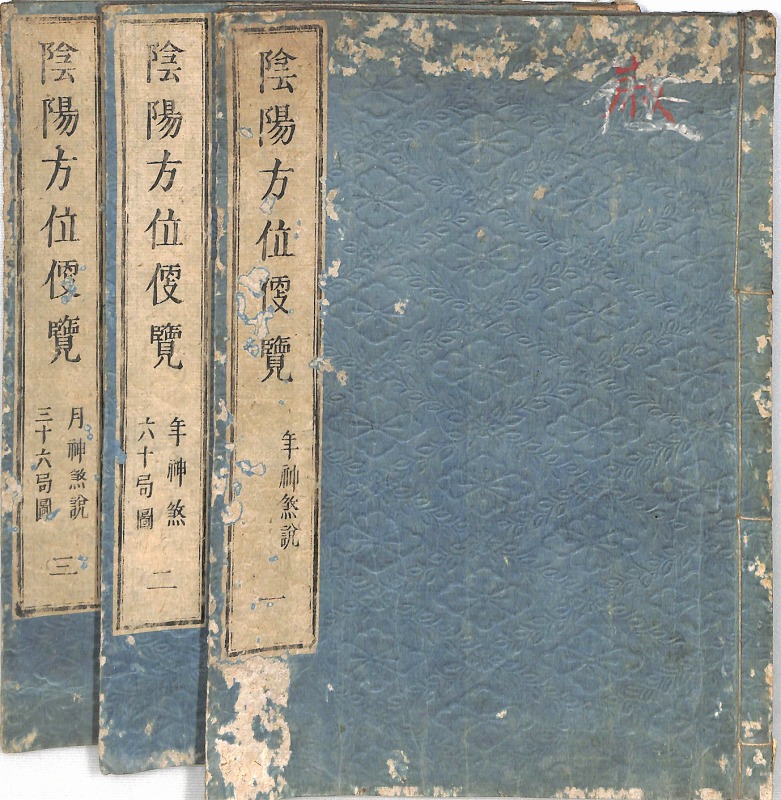 陰陽方位便覽
年神煞說
一
陰陽方位便覽
年神煞
六十局圖
二
陰陽方位便覽
月神煞說
三十六局圖
三